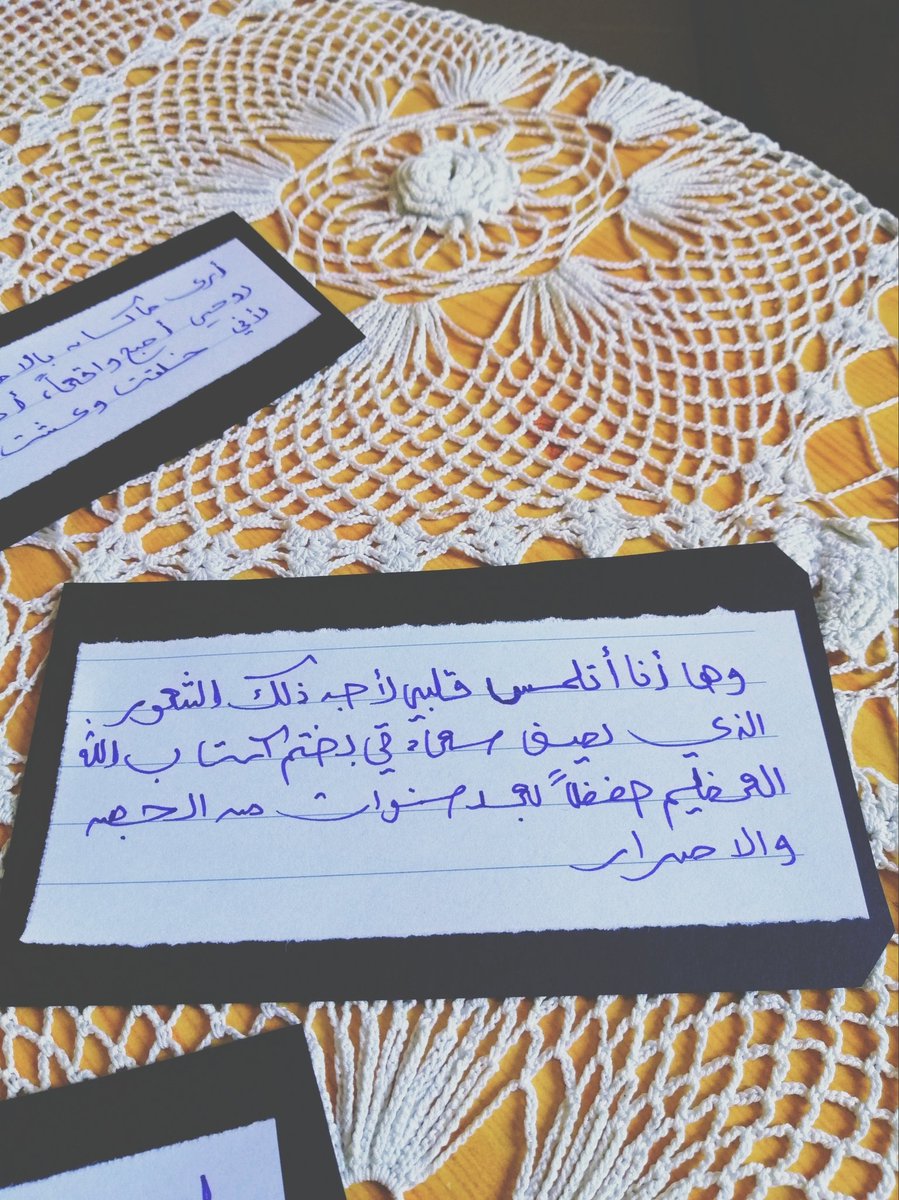 أرى ماكان بالا
روحي أصبح واقعاً، أ
لأني خلقت وعشت
وها أنا أتلمس قلبي لأجد ذلك الشعور
الذي يصف سعادتي بختم كتاب الله
العظيم حفظاً بعد سنوات من الصبر
والاصرار